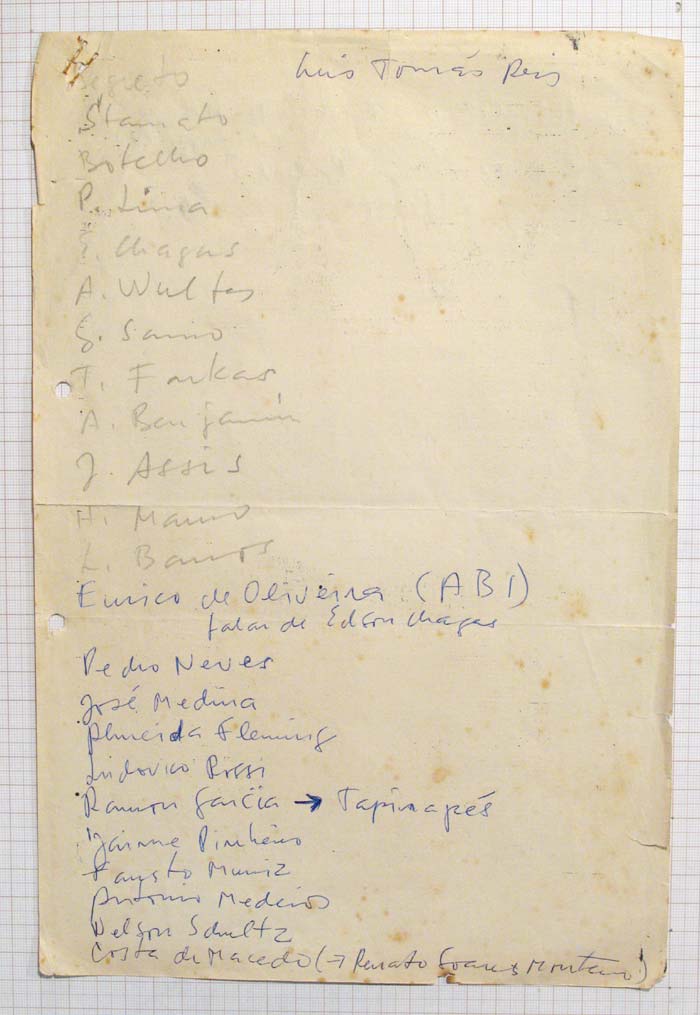 Luis Tomás Reis
Segreto
Stamato
Botelho
P. Lima
Chagas
A. Wulfes
G. Sanno
T. Farkas
A. Benjamin
J. Assis
H. Mauro
L. Barros
Eurico de Oliveira (ABI)
falar de Edson Chagas
Pedro Neves
José Medina
Almeida Fleming
Ludovico Rossi
Ramon Garcia → Tapirapés
Jaime Pinheiro
Fausto Muniz
Antonio Medeiros
Nelson Schultz
Costa de Macedo (→ Renato Soares Monteiro)